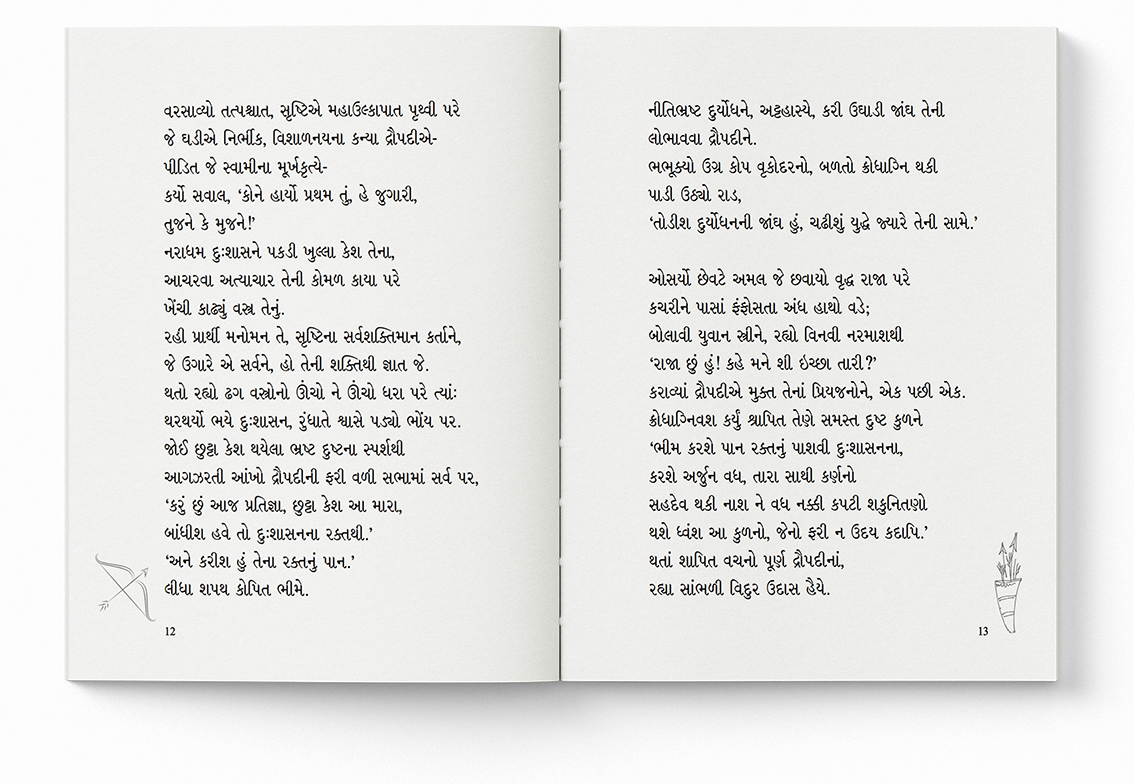 વરસાવ્યો તત્પશ્ચાત, સૃષ્ટિએ મહાઉલ્કાપાત પૃથ્વી પરે
જે ઘડીએ નિર્ભીક, વિશાળનયના કન્યા દ્રૌપદીએ-
પીડિત જે સ્વામીના મૂર્ખકૃત્યે-
કર્યો સવાલ, ‘કોને હાર્યો પ્રથમ તું, હે જુગારી,
તુજને કે મુજને!’
નરાધમ દુઃશાસને પકડી ખુલ્લા કેશ તેના,
આચરવા અત્યાચાર તેની કોમળ કાયા પરે
ખેંચી કાઢ્યું વસ્ત્ર તેનું.
રહી પ્રાર્થી મનોમન તે, સૃષ્ટિના સર્વશક્તિમાન કર્તાને,
જે ઉગારે એ સર્વને, હો તેની શક્તિથી જ્ઞાત જે.
થતો રહ્યો ઢગ વસ્ત્રોનો ઊંચો ને ઊંચો ધરા પરે ત્યાંઃ
થરથર્યો ભયે દુઃશાસન, રુંધાતે શ્વાસે પડ્યો ભોંય પર.
જોઈ છુટ્ટા કેશ થયેલા ભ્રષ્ટ દુષ્ટના સ્પર્શથી
આગઝરતી આંખો દ્રૌપદીની ફરી વળી સભામાં સર્વ પર,
‘કરું છું આજ પ્રતિજ્ઞા, છુટ્ટા કેશ આ મારા,
બાંધીશ હવે તો દુઃશાસનના રક્તથી.’
‘અને કરીશ હું તેના રક્તનું પાન.’
લીધા શપથ કોપિત ભીમે.
12
નીતિભ્રષ્ટ દુર્યોધને, અટ્ટહાસ્યે, કરી ઉઘાડી જાંઘ તેની
લોભાવવા દ્રૌપદીને.
ભભૂક્યો ઉગ્ર કોપ વૃકોદરનો, બળતો ક્રોધાગ્નિ થકી
પાડી ઉઠ્યો રાડ,
‘તોડીશ દુર્યોધનની જાંઘ હું, ચઢીશું યુદ્ધે જ્યારે તેની સામે.’
ઓસર્યો છેવટે અમલ જે છવાયો વૃદ્ધ રાજા પરે
કચરીને પાસાં ફંફોસતા અંધ હાથો વડે;
બોલાવી યુવાન સ્ત્રીને, રહ્યો વિનવી નરમાશથી
‘રાજા છું હું! કહે મને શી ઇચ્છા તારી?’
કરાવ્યાં દ્રૌપદીએ મુક્ત તેનાં પ્રિયજનોને, એક પછી એક.
ક્રોધાગ્નિવશ કર્યું શ્રાપિત તેણે સમસ્ત દુષ્ટ કુળને
‘ભીમ કરશે પાન રક્તનું પાશવી દુઃશાસનના,
કરશે અર્જુન વધ, તારા સાથી કર્ણનો
સહદેવ થકી નાશ ને વધ નક્કી કપટી શકુનિતણો
થશે ધ્વંશ આ કુળનો, જેનો ફરી ન ઉદય કદાપિ.’
થતાં શાપિત વચનો પૂર્ણ દ્રૌપદીનાં,
રહ્યા સાંભળી વિદુર ઉદાસ હૈયે.
13